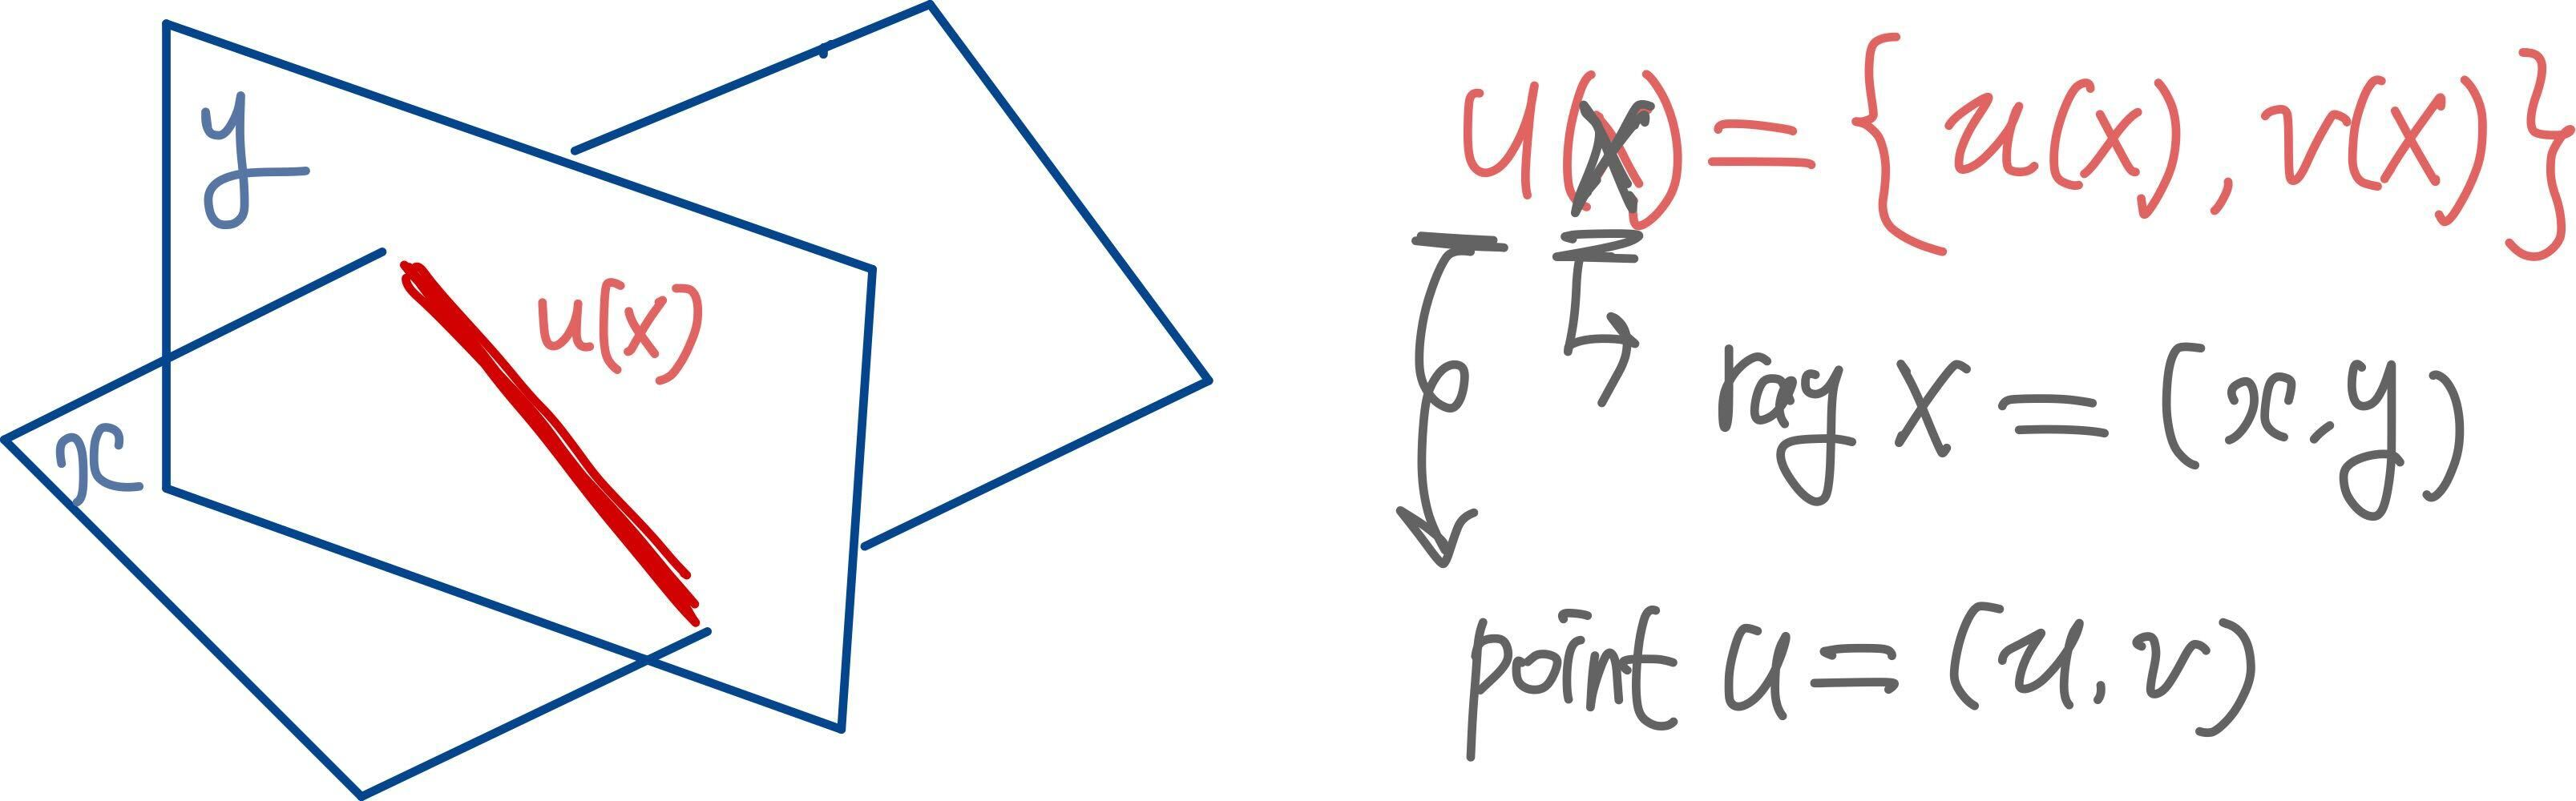 y
x
u(x)
u(x) = {u(x), v(x)}
ray x = (x, y)
point u = (u, v)